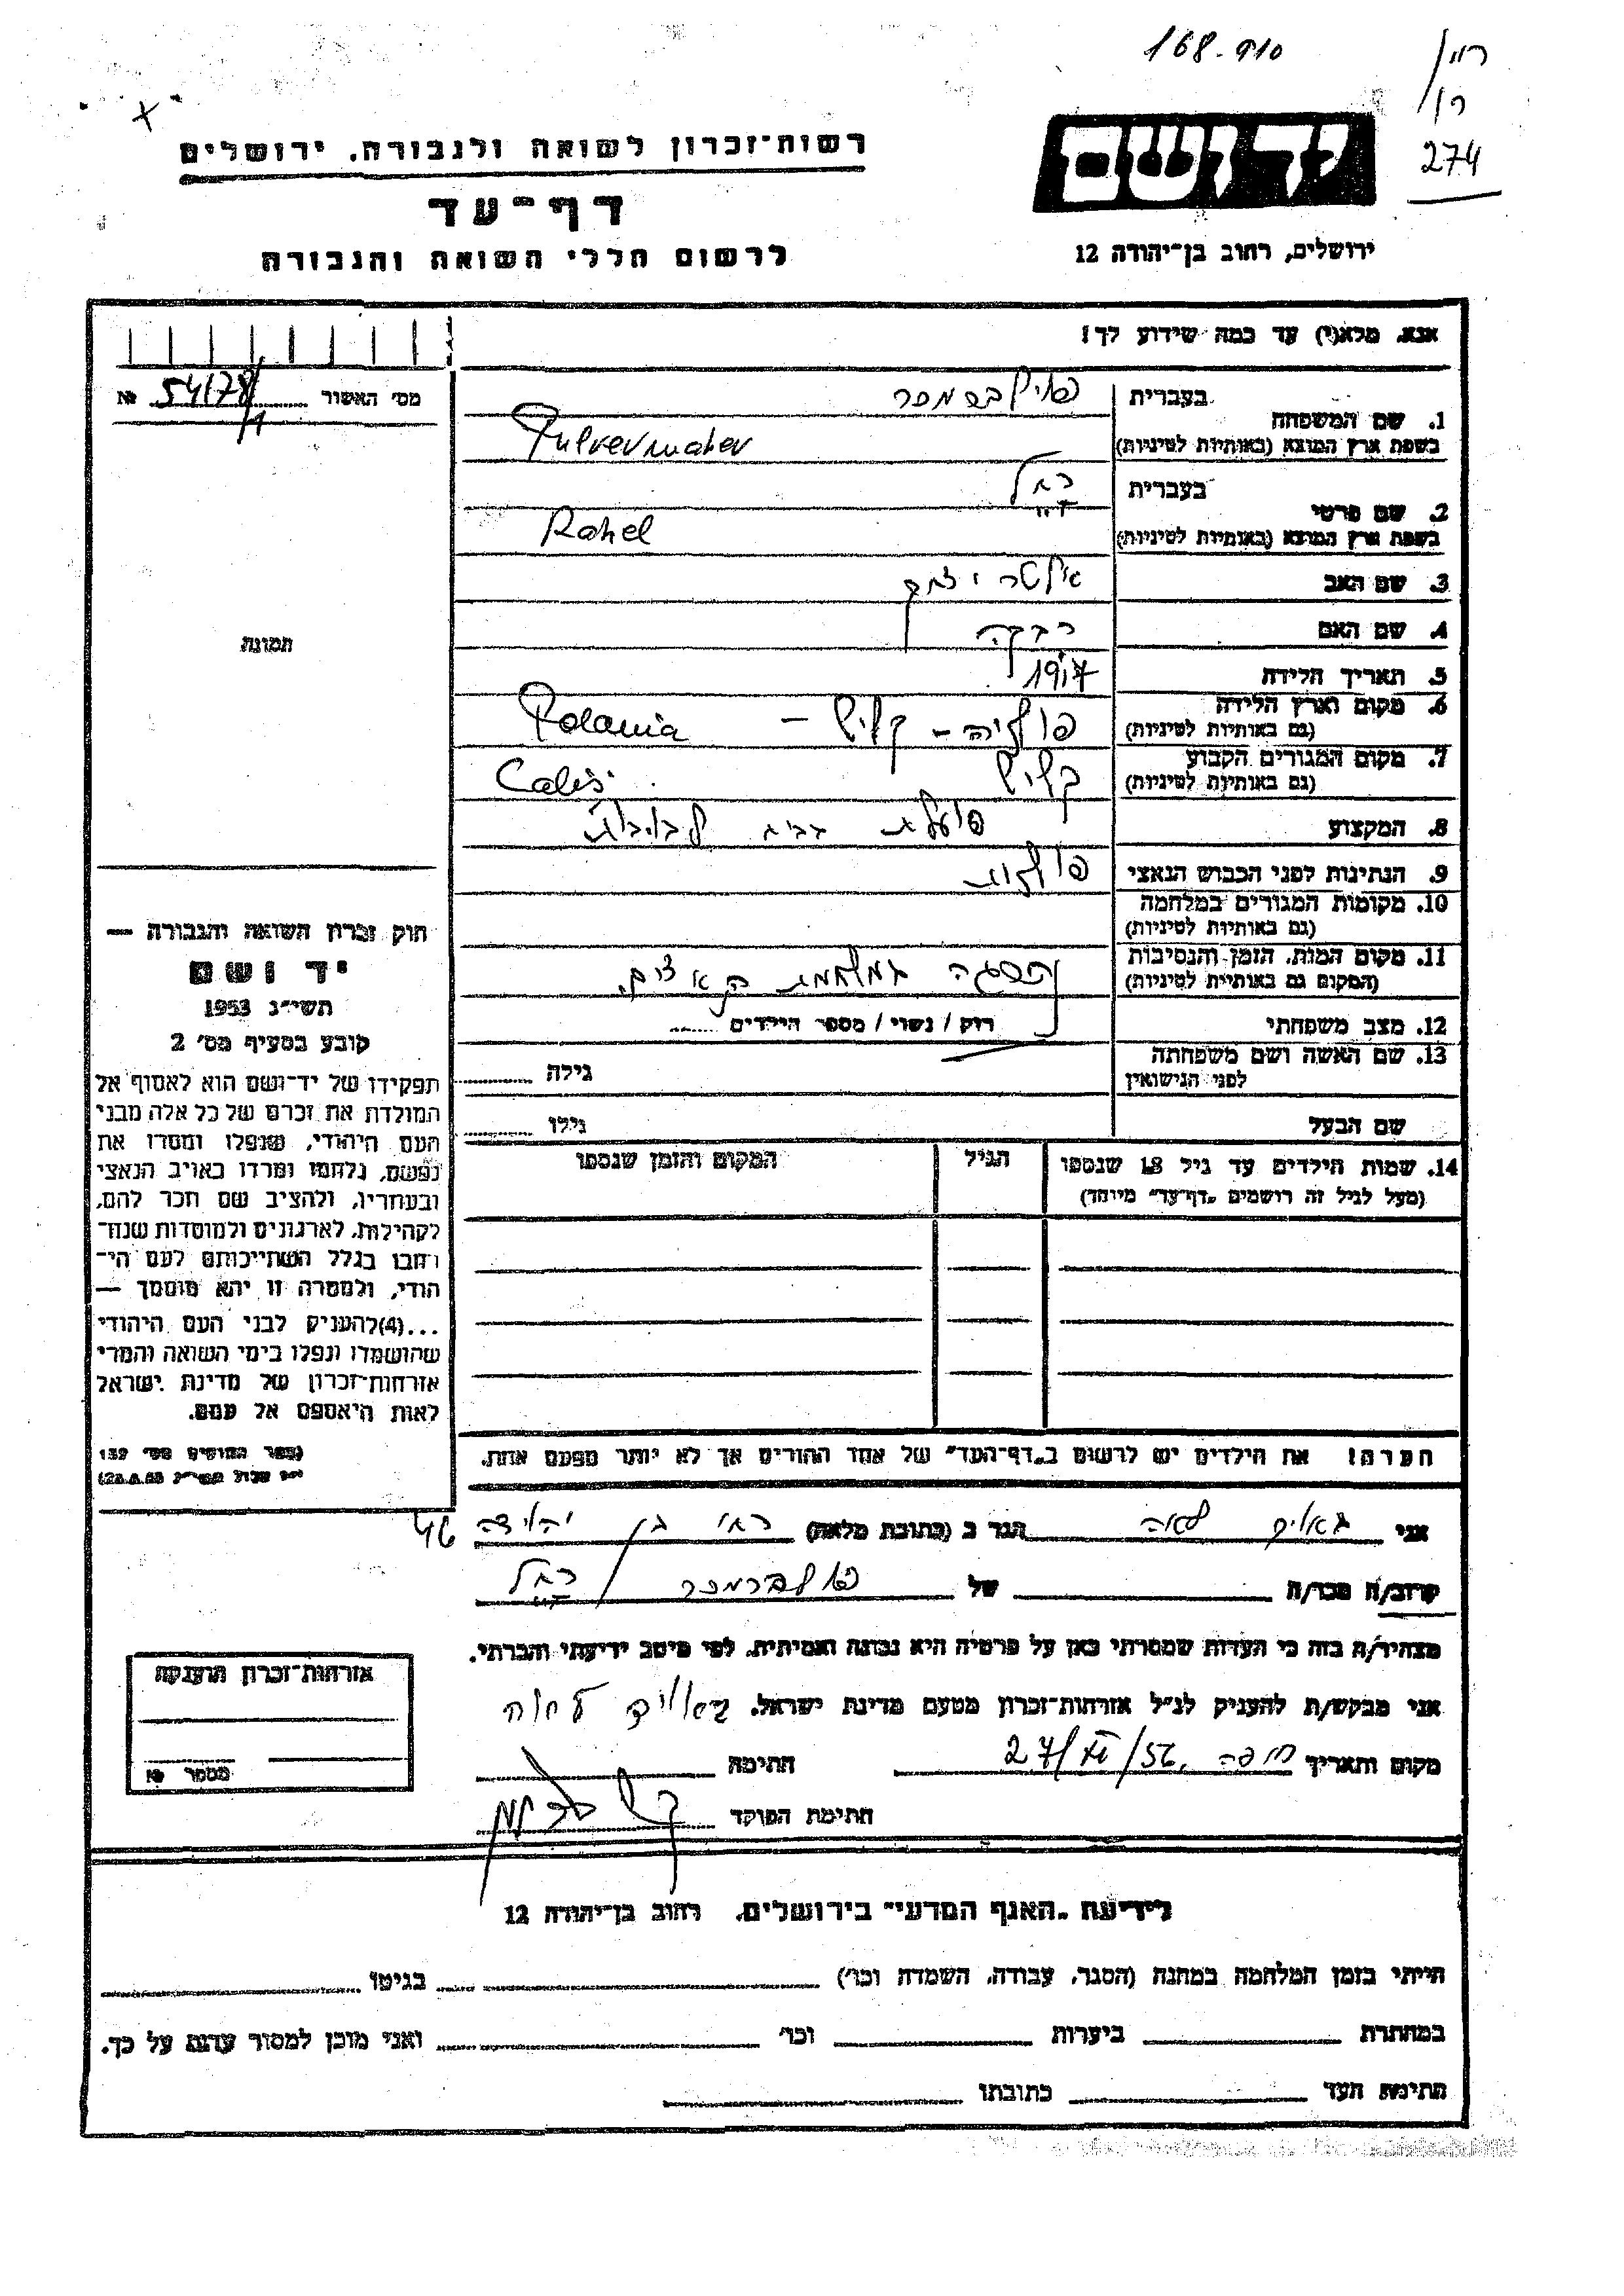 168.910
274
יד ושם
רשות־זכרון לשואה ולגבורה, ירושלים
דף־עד
לרשום חללי השואה והגבורה
ירושלים, רחוב בן־יהודה 12
אנא, מלא(י) עד כמה שידוע לך!
מס׳ האשור 54178/1 №
1. שם המשפחה
בעברית
בשפת ארץ המוצא (באותיות לטיניות) Pulvermaher
2. שם פרטי
בעברית רחל
בשפת ארץ המוצא (באותיות לטיניות) Rahel
3. שם האב אלטר יצחק
4. שם האם רבקה
5. תאריך הלידה 1917
6. מקום וארץ הלידה (גם באותיות לטיניות) פולניה – קליש – Polania
7. מקום המגורים הקבוע (גם באותיות לטיניות) קליש Calis
8. המקצוע פועלת
9. הנתינות לפני הכבוש הנאצי פולנית
10. מקומות המגורים במלחמה (גם באותיות לטיניות)
11. מקום המות, הזמן והנסיבות (המקום גם באותיות לטיניות) נספתה במלחמת
12. מצב משפחתי רוק / נשוי / מספר הילדים
13. שם האשה ושם משפחתה לפני הנישואין גילה
שם הבעל גילו
14. שמות הילדים עד גיל 18 שנספו
(מעל לגיל זה רושמים „דף־עד״ מיוחד)
הגיל
המקום והזמן שנספו
תמונה
חוק זכרון השואה והגבורה —
יד ושם
תשי״ג 1953
קובע בסעיף מס׳ 2
תפקידו של יד־ושם הוא לאסוף אל
המולדת את זכרם של כל אלה מבני
העם היהודי, שנפלו ומסרו את
נפשם, נלחמו ומרדו באויב הנאצי
ובעוזריו, ולהציב שם וזכר להם,
לקהילות, לארגונים ולמוסדות שנח־
רבו בגלל השתייכותם לעם הי־
הודי, ולמטרה זו יהא מוסמך —
...(4)להעניק לבני העם היהודי
שהושמדו ונפלו בימי השואה והמרי
אזרחות־זכרון של מדינת ישראל
לאות היאספם אל עמם.
(ספר החוקים מס׳ 132
הערה! את הילדים יש לרשום ב„דף־העד״ של אחד ההורים אך לא יותר מפעם אחת.
אני הגר ב (כתובת מלאה) 46
קרוב/ה מכר/ה של פולברמכר רחל
מצהיר/ה בזה כי העדות שמסרתי כאן על פרטיה היא נכונה ואמיתית, לפי מיטב ידיעתי והכרתי.
אני מבקש/ת להעניק לנ״ל אזרחות־זכרון מטעם מדינת ישראל.
מקום ותאריך חיפה, 56/ /27 חתימה
חתימת הפוקד
אזרחות־זכרון הוענקה
מספר №
לידיעת „האגף המדעי״ בירושלים, רחוב בן־יהודה 12
הייתי בזמן המלחמה במחנה (הסגר, עבודה, השמדה וכו׳) בגיטו
במחתרת ביערות וכו׳ ואני מוכן למסור עדות על כך.
חתימת העד כתובתו